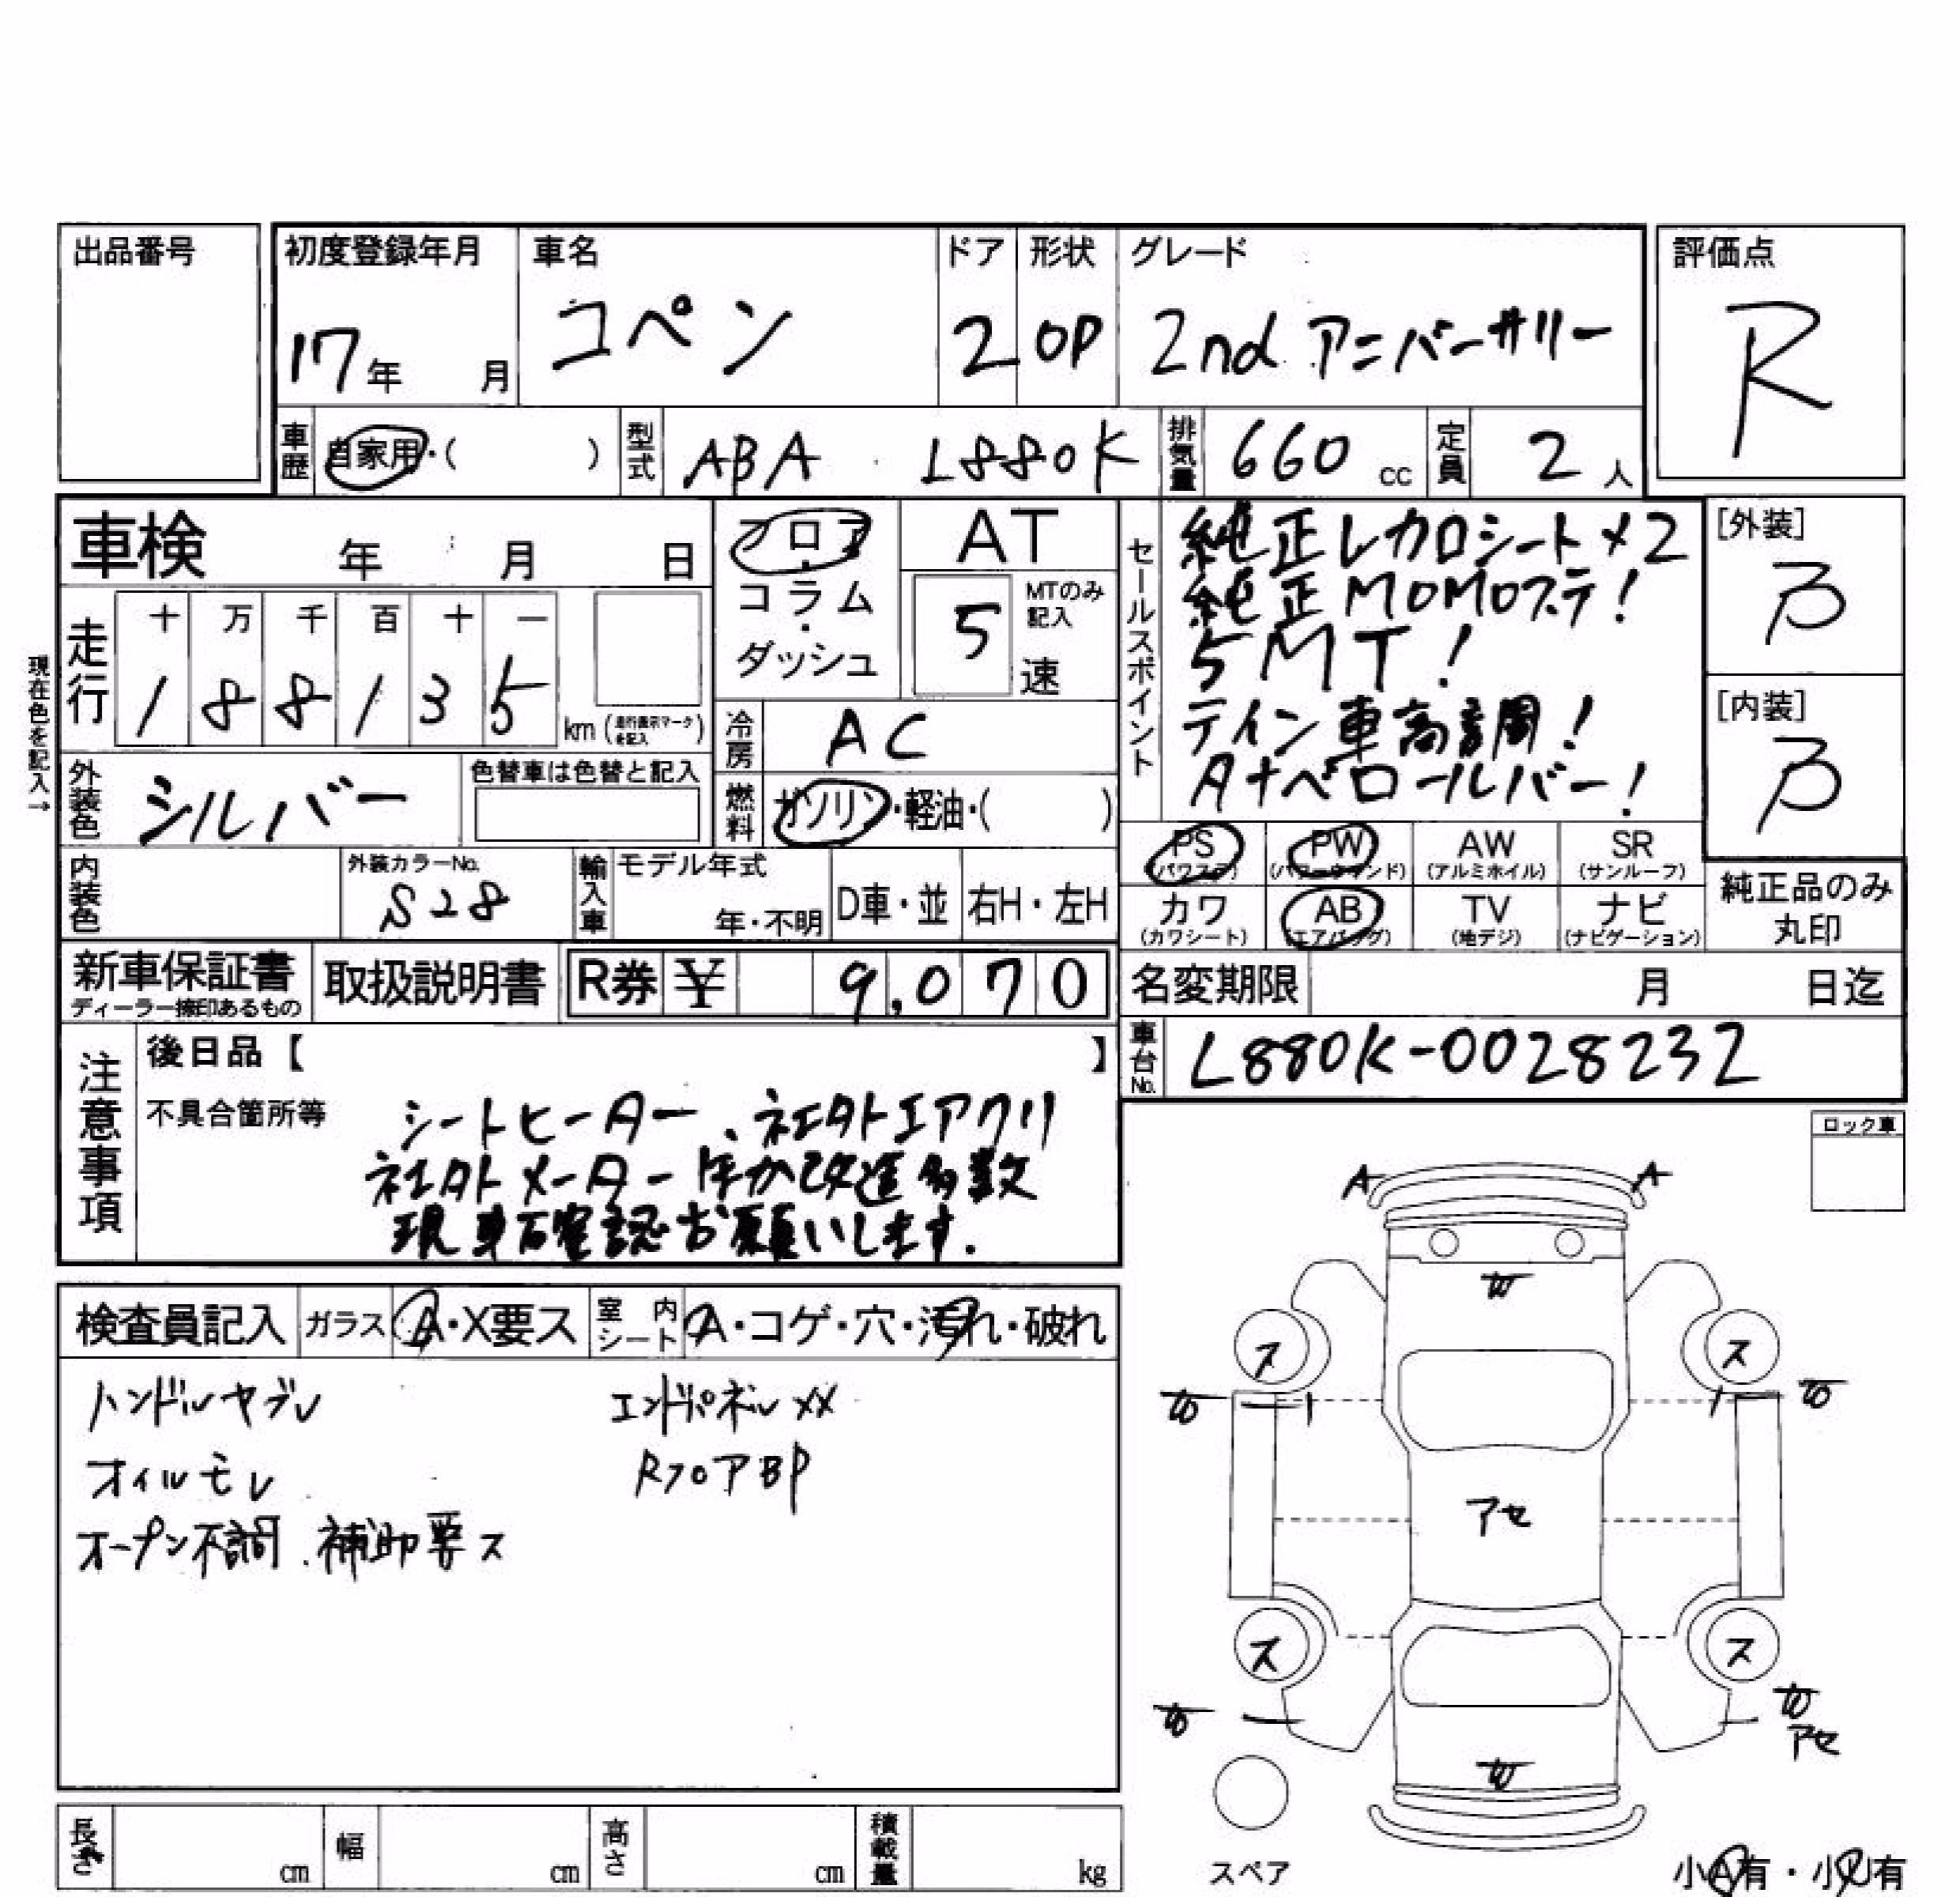 出品番号
初度登録年月 車名 ドア 形状 グレード 評価点
17年 月 コペン 2 OP 2nd アニバーサリー R
車歴 自家用・( ) 型式 ABA L880K 排気量 660 cc 定員 2 人
車検 年 月 日
フロア・コラム・ダッシュ
AT
5 MTのみ記入 速
現在色を記入→
走行 十 万 千 百 十 一
1 8 8 1 3 5 km (走行表示マークを記入)
冷房 AC
燃料 ガソリン・軽油・( )
外装色 シルバー 色替車は色替と記入
内装色 外装カラーNo. S28 輸入車 モデル年式 年・不明 D車・並 右H・左H
セールスポイント
純正レカロシート×2
純正MOMOステ!
5MT!
テイン車高調!
タナベロールバー!
[外装]
B
[内装]
B
PS (パワステ) PW (パワーウインド) AW (アルミホイル) SR (サンルーフ)
カワ (カワシート) AB (エアバッグ) TV (地デジ) ナビ (ナビゲーション)
純正品のみ丸印
新車保証書 ディーラー捺印あるもの 取扱説明書 R券 ¥ 9,070
名変期限 月 日迄
車台No. L880K-0028232
注意事項
後日品【 】
不具合箇所等 シートヒーター、社外エアクリ
社外メーター ほか改造多数
現車確認お願いします.
検査員記入 ガラス A・X要ス 室内シート A・コゲ・穴・汚れ・破れ
ハンドルヤブレ エンドパネルXX
オイルモレ RフロアBP
オープン不調.補助要ス
ロック車
A A
W
ス ス
アセ
ス ス
アセ
W
スペア
小A有・小U有
長さ cm 幅 cm 高さ cm 積載量 kg